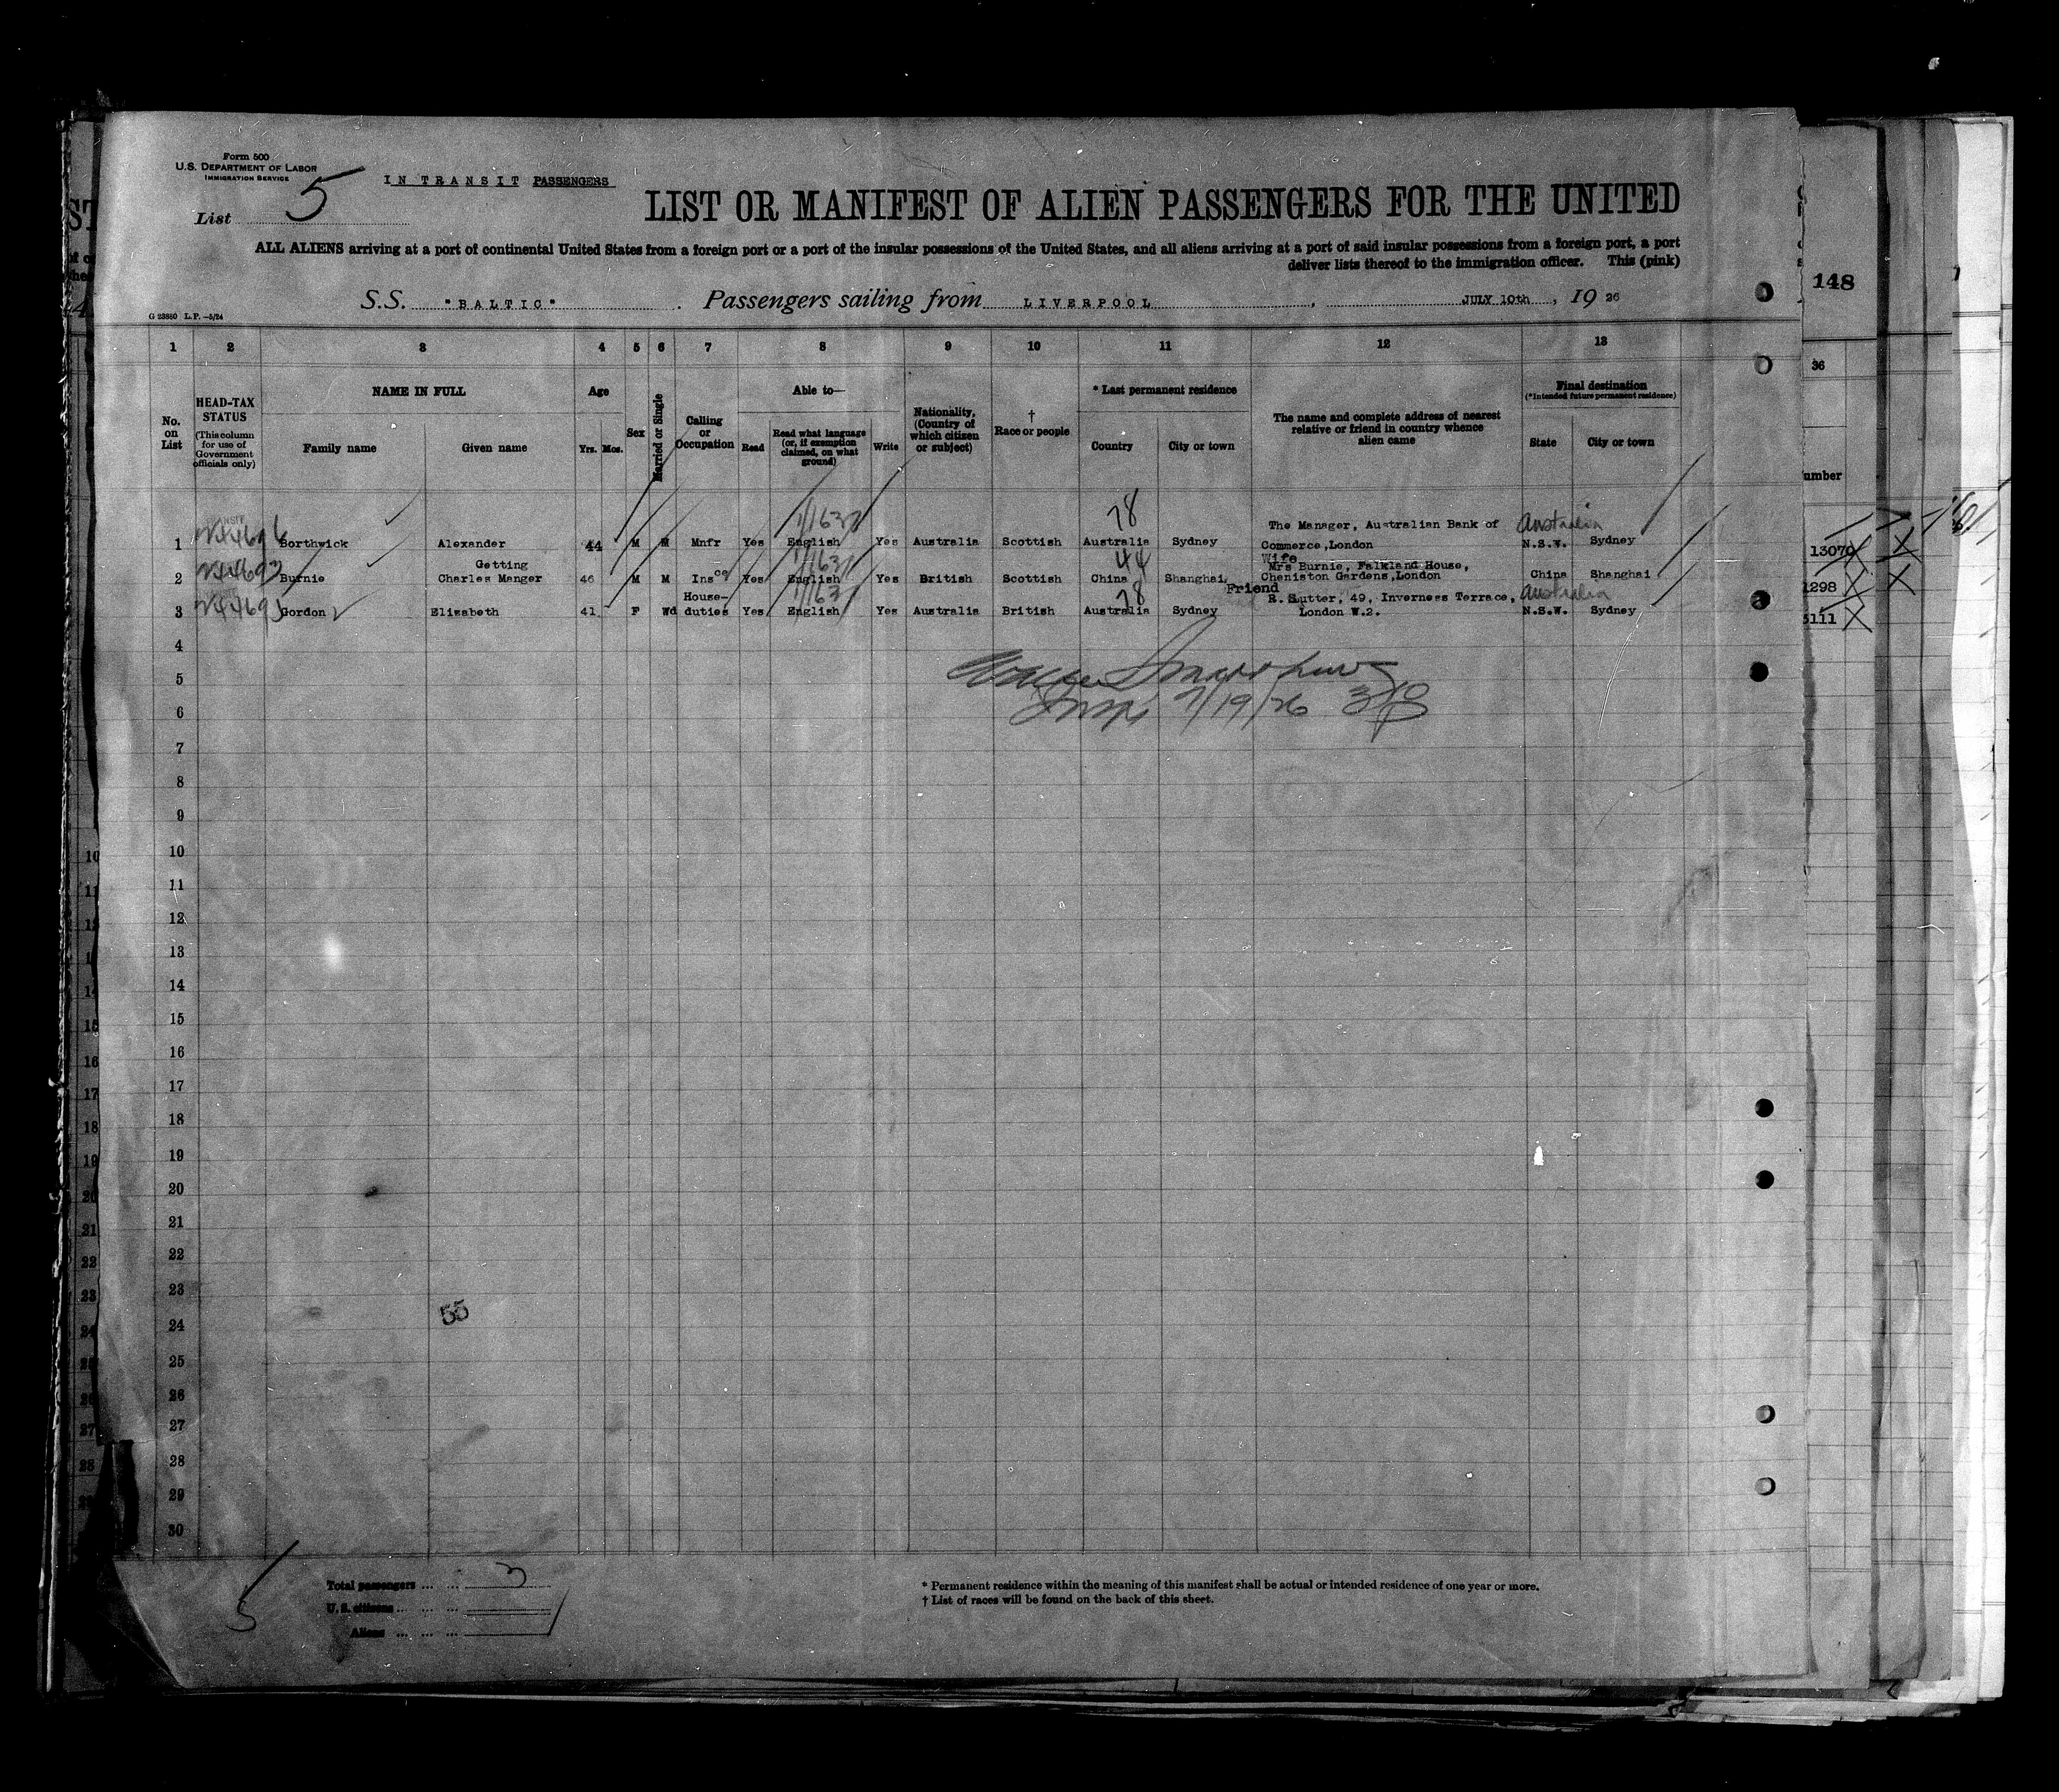 Form 500
U.S. DEPARTMENT OF LABOR
IMMIGRATION SERVICE
IN TRANSIT PASSENGERS
List 5
LIST OR MANIFEST OF ALIEN PASSENGERS FOR THE UNITED
ALL ALIENS arriving at a port of continental United States from a foreign port or a port of the insular possessions of the United States, and all aliens arriving at a port of said insular possessions from a foreign port, a port
deliver lists thereof to the immigration officer. This (pink)
S.S. "BALTIC". Passengers sailing from LIVERPOOL, JULY 10th, 19 26
G 23880 L.P. —5/24
148
1 2 3 4 5 6 7 8 9 10 11 12 13
36
No. on List
HEAD-TAX STATUS (This column for use of Government officials only)
NAME IN FULL
Family name
Given name
Age
Yrs. Mos.
Sex
Married or Single
Calling or Occupation
Able to—
Read
Read what language (or, if exemption claimed, on what ground)
Write
Nationality, (Country of which citizen or subject)
† Race or people
* Last permanent residence
Country
City or town
The name and complete address of nearest relative or friend in country whence alien came
Final destination
(*Intended future permanent residence)
State
City or town
umber
78
The Manager, Australian Bank of Australia
1 Borthwick Alexander 44 M M Mnfr Yes English Yes Australia Scottish Australia Sydney Commerce, London N.S.W. Sydney
13070
44
Getting Wife Mrs Burnie, Falkland House,
2 Burnie Charles Manger 46 M M Insce Yes English Yes British Scottish China Shanghai Cheniston Gardens, London China Shanghai
1298
78
House- Friend R. Sutter, 49, Inverness Terrace, Australia
3 Gordon Elizabeth 41 F Wd duties Yes English Yes Australia British Australia Sydney London W.2. N.S.W. Sydney
5111
4
5
6
7/19/26
7
8
9
10
11
12
13
14
15
16
17
18
19
20
21
22
23
55
24
25
26
27
28
29
30
Total passengers ... ... 3
U.S. citizens ... ... ...
Aliens ... ... ...
5
* Permanent residence within the meaning of this manifest shall be actual or intended residence of one year or more.
† List of races will be found on the back of this sheet.